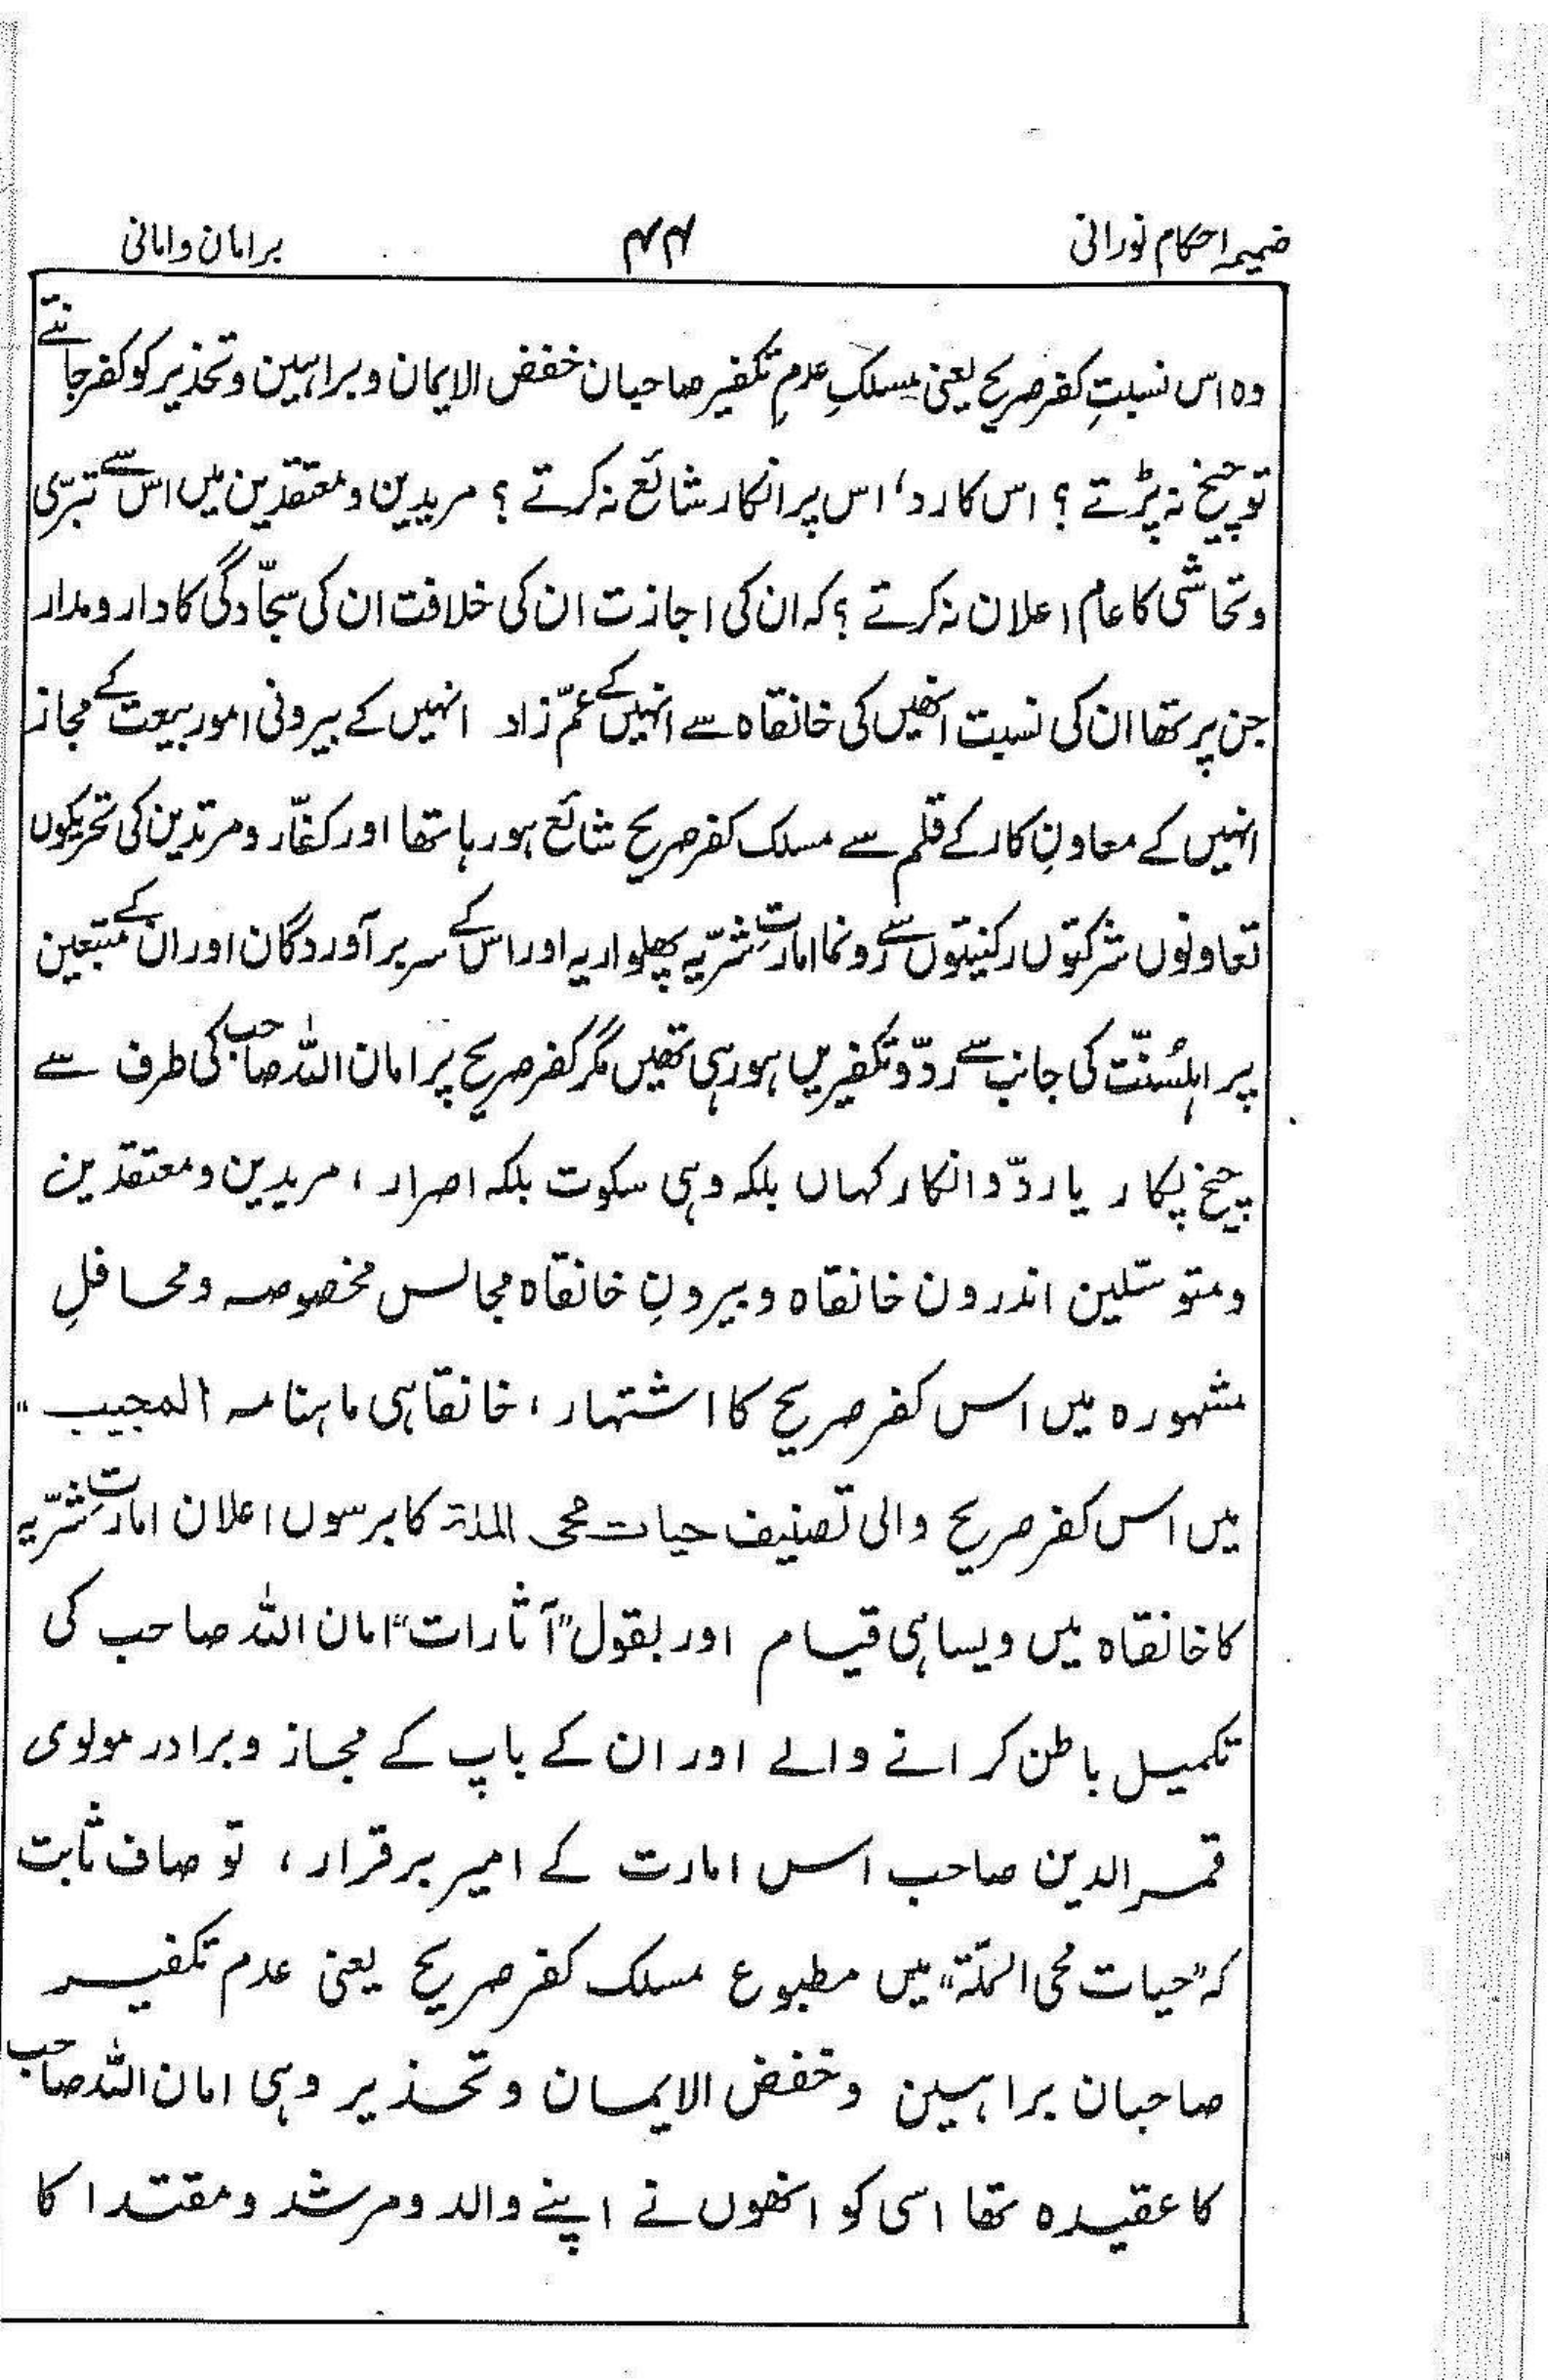 ضمیمہ احکام نورانی ۴۴ بر امان و امانی
وہ اس نسبتِ کفر صریح یعنی مسلکِ عدمِ تکفیر صاحبان خفض الایمان و براہین و تحذیر کو کفر جانتے
تو چیخ نہ پڑتے ؟ اس کا رد، اس پر انکار شائع نہ کرتے ؟ مریدین و معتقدین میں اس سے تبرّی
و تحاشی کا عام اعلان نہ کرتے ؟ کہ ان کی اجازت ان کی خلافت ان کی سجّادگی کا دار و مدار
جن پر تھا ان کی نسبت انھیں کی خانقاہ سے انہیں کے عمّ زاد انہیں کے بیرونی امور بیعت کے مجاز
انہیں کے معاونِ کار کے قلم سے مسلک کفر صریح شائع ہو رہا تھا اور کفّار و مرتدین کی تحریکوں
تعاونوں شرکتوں رکنیتوں سے رونما امارتِ شرّیہ پھلواریہ اور اس کے سر بر آوردگان اور ان کے متبعین
پر اہلسُنّت کی جانب سے ردّ و تکفیریں ہو رہی تھیں مگر کفر صریح پر امان اللہ صاحب کی طرف سے
چیخ پکار یا ردّ و انکار کہاں بلکہ وہی سکوت بلکہ اصرار ، مریدین و معتقدین
و متوسّلین اندرون خانقاہ و بیرونِ خانقاہ مجالس مخصوصہ و محافلِ
مشہورہ میں اس کفر صریح کا اشتہار ، خانقاہی ماہنامہ المجیب "
میں اس کفر صریح والی تصنیف حیات محی الملۃ کا برسوں اعلان امارتِ شرّیہ
کا خانقاہ میں ویسا ہی قیام اور بقول "آثارات" امان اللہ صاحب کی
تکمیل باطن کرانے والے اور ان کے باپ کے مجاز و برادر مولوی
قمر الدین صاحب اس امارت کے امیر برقرار ، تو صاف ثابت
کہ "حیات محی الملّۃ" میں مطبوع مسلک کفر صریح یعنی عدم تکفیر
صاحبان براہین و خفض الایمان و تحذیر وہی امان اللہ صاحب
کا عقیدہ تھا اسی کو انھوں نے اپنے والد و مرشد و مقتدا کا